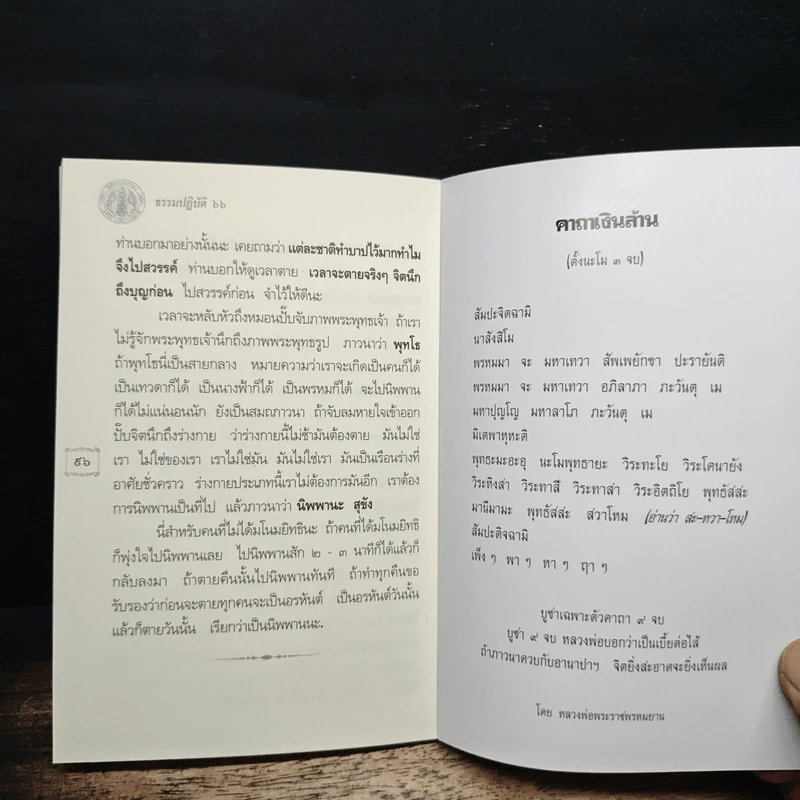 ธรรมปฏิบัติ ๖๖
ท่านบอกมาอย่างนั้นนะ เคยถามว่า แต่ละชาติทำบาปไว้มากทำไม
จึงไปสวรรค์ ท่านบอกให้ดูเวลาตาย เวลาจะตายจริงๆ จิตนึก
ถึงบุญก่อน ไปสวรรค์ก่อน จำไว้ให้ดีนะ
เวลาจะหลับหัวถึงหมอนปั๊บจับภาพพระพุทธเจ้า ถ้าเรา
ไม่รู้จักพระพุทธเจ้านึกถึงภาพพระพุทธรูป ภาวนาว่า พุทโธ
ถ้าพุทโธนี่เป็นสายกลาง หมายความว่าเราจะเกิดเป็นคนก็ได้
เป็นเทวดาก็ได้ เป็นนางฟ้าก็ได้ เป็นพรหมก็ได้ จะไปนิพพาน
ก็ได้ไม่แน่นอนนัก ยังเป็นสมถภาวนา ถ้าจับลมหายใจเข้าออก
ปั๊บจิตนึกถึงร่างกาย ว่าร่างกายนี้ไม่ช้ามันต้องตาย มันไม่ใช่
เรา ไม่ใช่ของเรา เราไม่ใช่มัน มันไม่ใช่เรา มันเป็นเรือนร่างที่
อาศัยชั่วคราว ร่างกายประเภทนี้เราไม่ต้องการมันอีก เราต้อง
การนิพพานเป็นที่ไป แล้วภาวนาว่า นิพพานะ สุขัง
นี่สำหรับคนที่ไม่ได้มโนมยิทธินะ ถ้าคนที่ได้มโนมยิทธิ
ก็พุ่งใจไปนิพพานเลย ไปนิพพานสัก ๒ - ๓ นาทีก็ได้แล้วก็
กลับลงมา ถ้าตายคืนนั้นไปนิพพานทันที ถ้าทำทุกคืนขอ
รับรองว่าก่อนจะตายทุกคนจะเป็นอรหันต์ เป็นอรหันต์วันนั้น
แล้วก็ตายวันนั้น เรียกว่าเป็นนิพพานนะ.
๕๖
คาถาเงินล้าน
(ตั้งนะโม ๓ จบ)
สัมปะจิตฉามิ
นาสังสิโม
พรหมมา จะ มหาเทวา สัพเพยักขา ปะรายันติ
พรหมมา จะ มหาเทวา อภิลาภา ภะวันตุ เม
มหาปุญโญ มหาลาโภ ภะวันตุ เม
มิเตพาหุหะติ
พุทธะมะอะอุ นะโมพุทธายะ วิระทะโย วิระโคนายัง
วิระหิงสา วิระทาสี วิระทาสา วิระอิตถิโย พุทธัสสะ
มานีมามะ พุทธัสสะ สวาโหม (อ่านว่า สะ-หวา-โหม)
สัมปะติจฉามิ
เพ็ง ๆ พา ๆ หา ๆ ฤา ๆ
บูชาเฉพาะตัวคาถา ๙ จบ
บูชา ๙ จบ หลวงพ่อบอกว่าเป็นเบี้ยต่อไส้
ถ้าภาวนาควบกับอานาปาฯ จิตยิ่งสะอาดจะยิ่งเห็นผล
โดย หลวงพ่อพระราชพรหมยาน